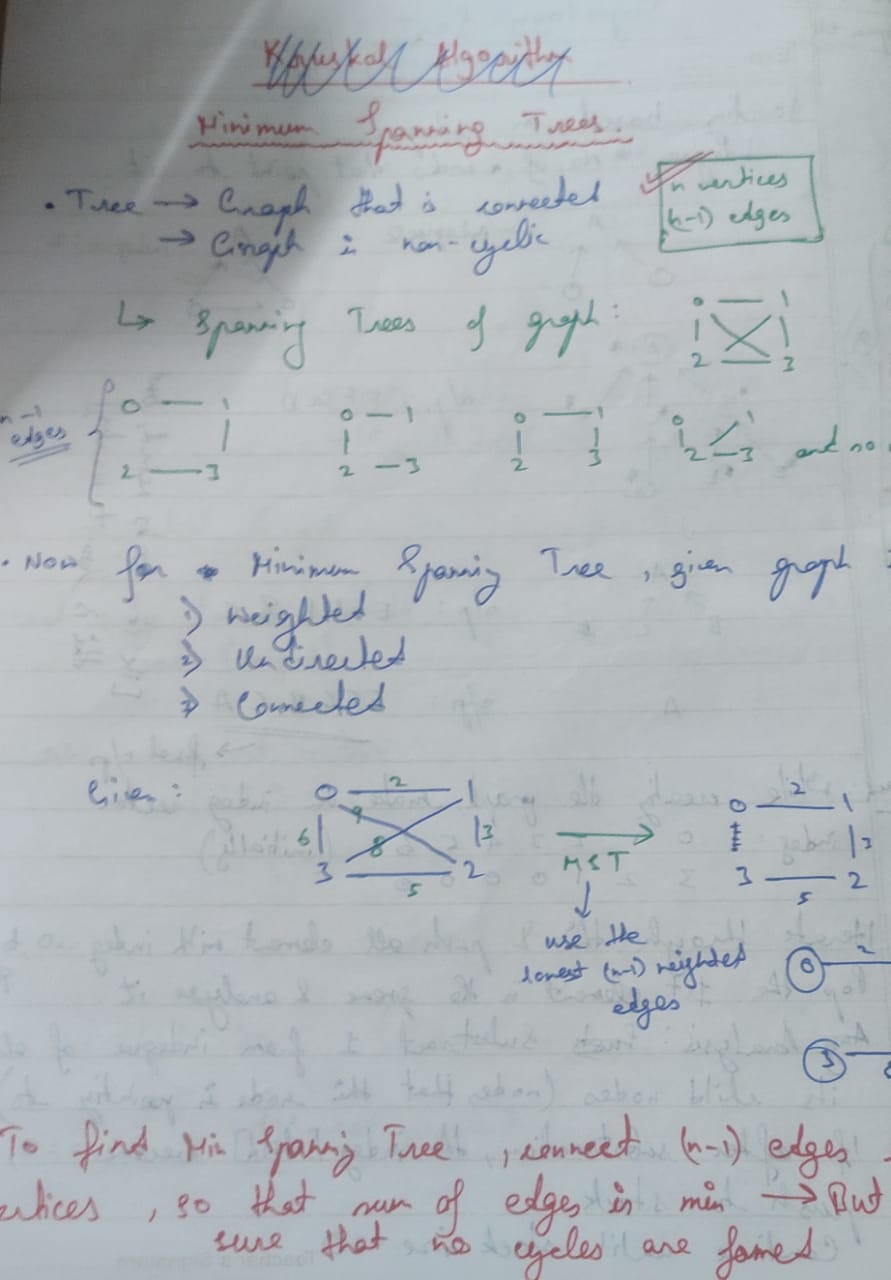 Kruskal Algorithm
Minimum Spanning Trees.
• Tree → Graph that is connected
→ Graph is non-cyclic
n vertices
(n-1) edges
↳ Spanning Trees of graph:
0 1
2 3
n-1
edges
0 1
2 3
0 1
2 3
0 1
2 3
0 1
2 3
and so
• Now for Minimum Spanning Tree, given graph
1) Weighted
2) Undirected
3) Connected
Given:
0 2 1
6 9 8 3
3 5 2
MST
0 2 1
3
3 5 2
use the
lowest (n-1) weighted
edges
0 2
3
To find Min Spanning Tree, connect (n-1) edges
vertices, so that sum of edges is min → But
sure that no cycles are formed